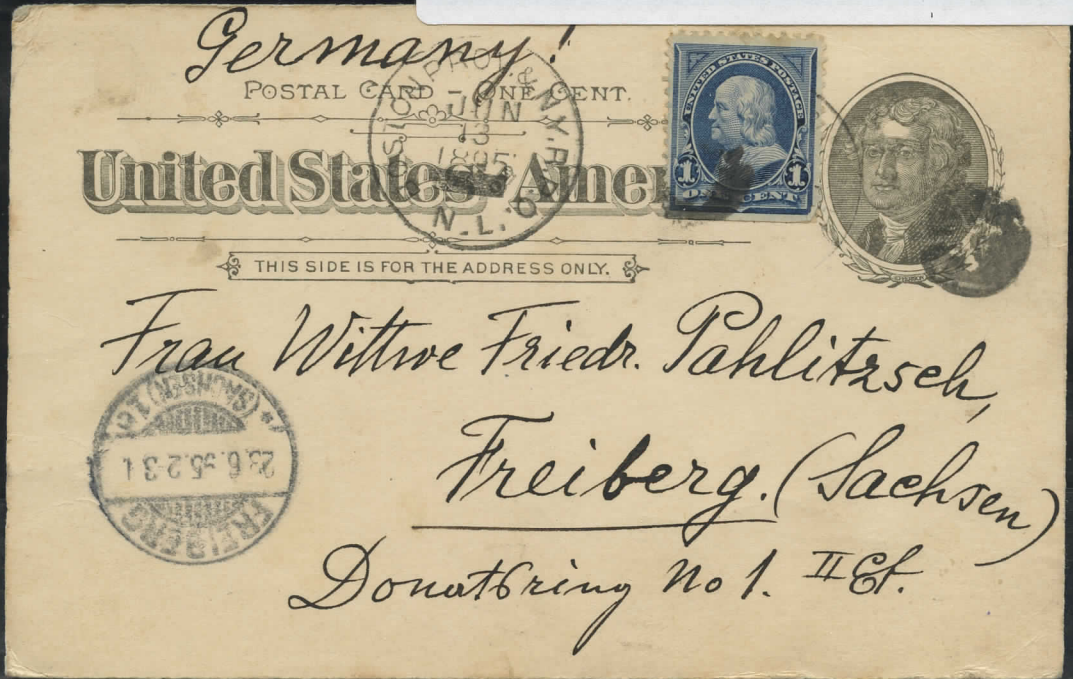 Germany!
POSTAL CARD – ONE CENT.
United States Amer
THIS SIDE IS FOR THE ADDRESS ONLY.
N.Y. R.P.O.
JUN
13
1895
N.L.
UNITED STATES POSTAGE
1 1
ONE CENT
Frau Wittwe Friedr. Pahlitzsch,
Freiberg. (Sachsen)
Donatsring No 1. II Et.
FREIBERG
23.6.95.2-3
(SACHSEN)